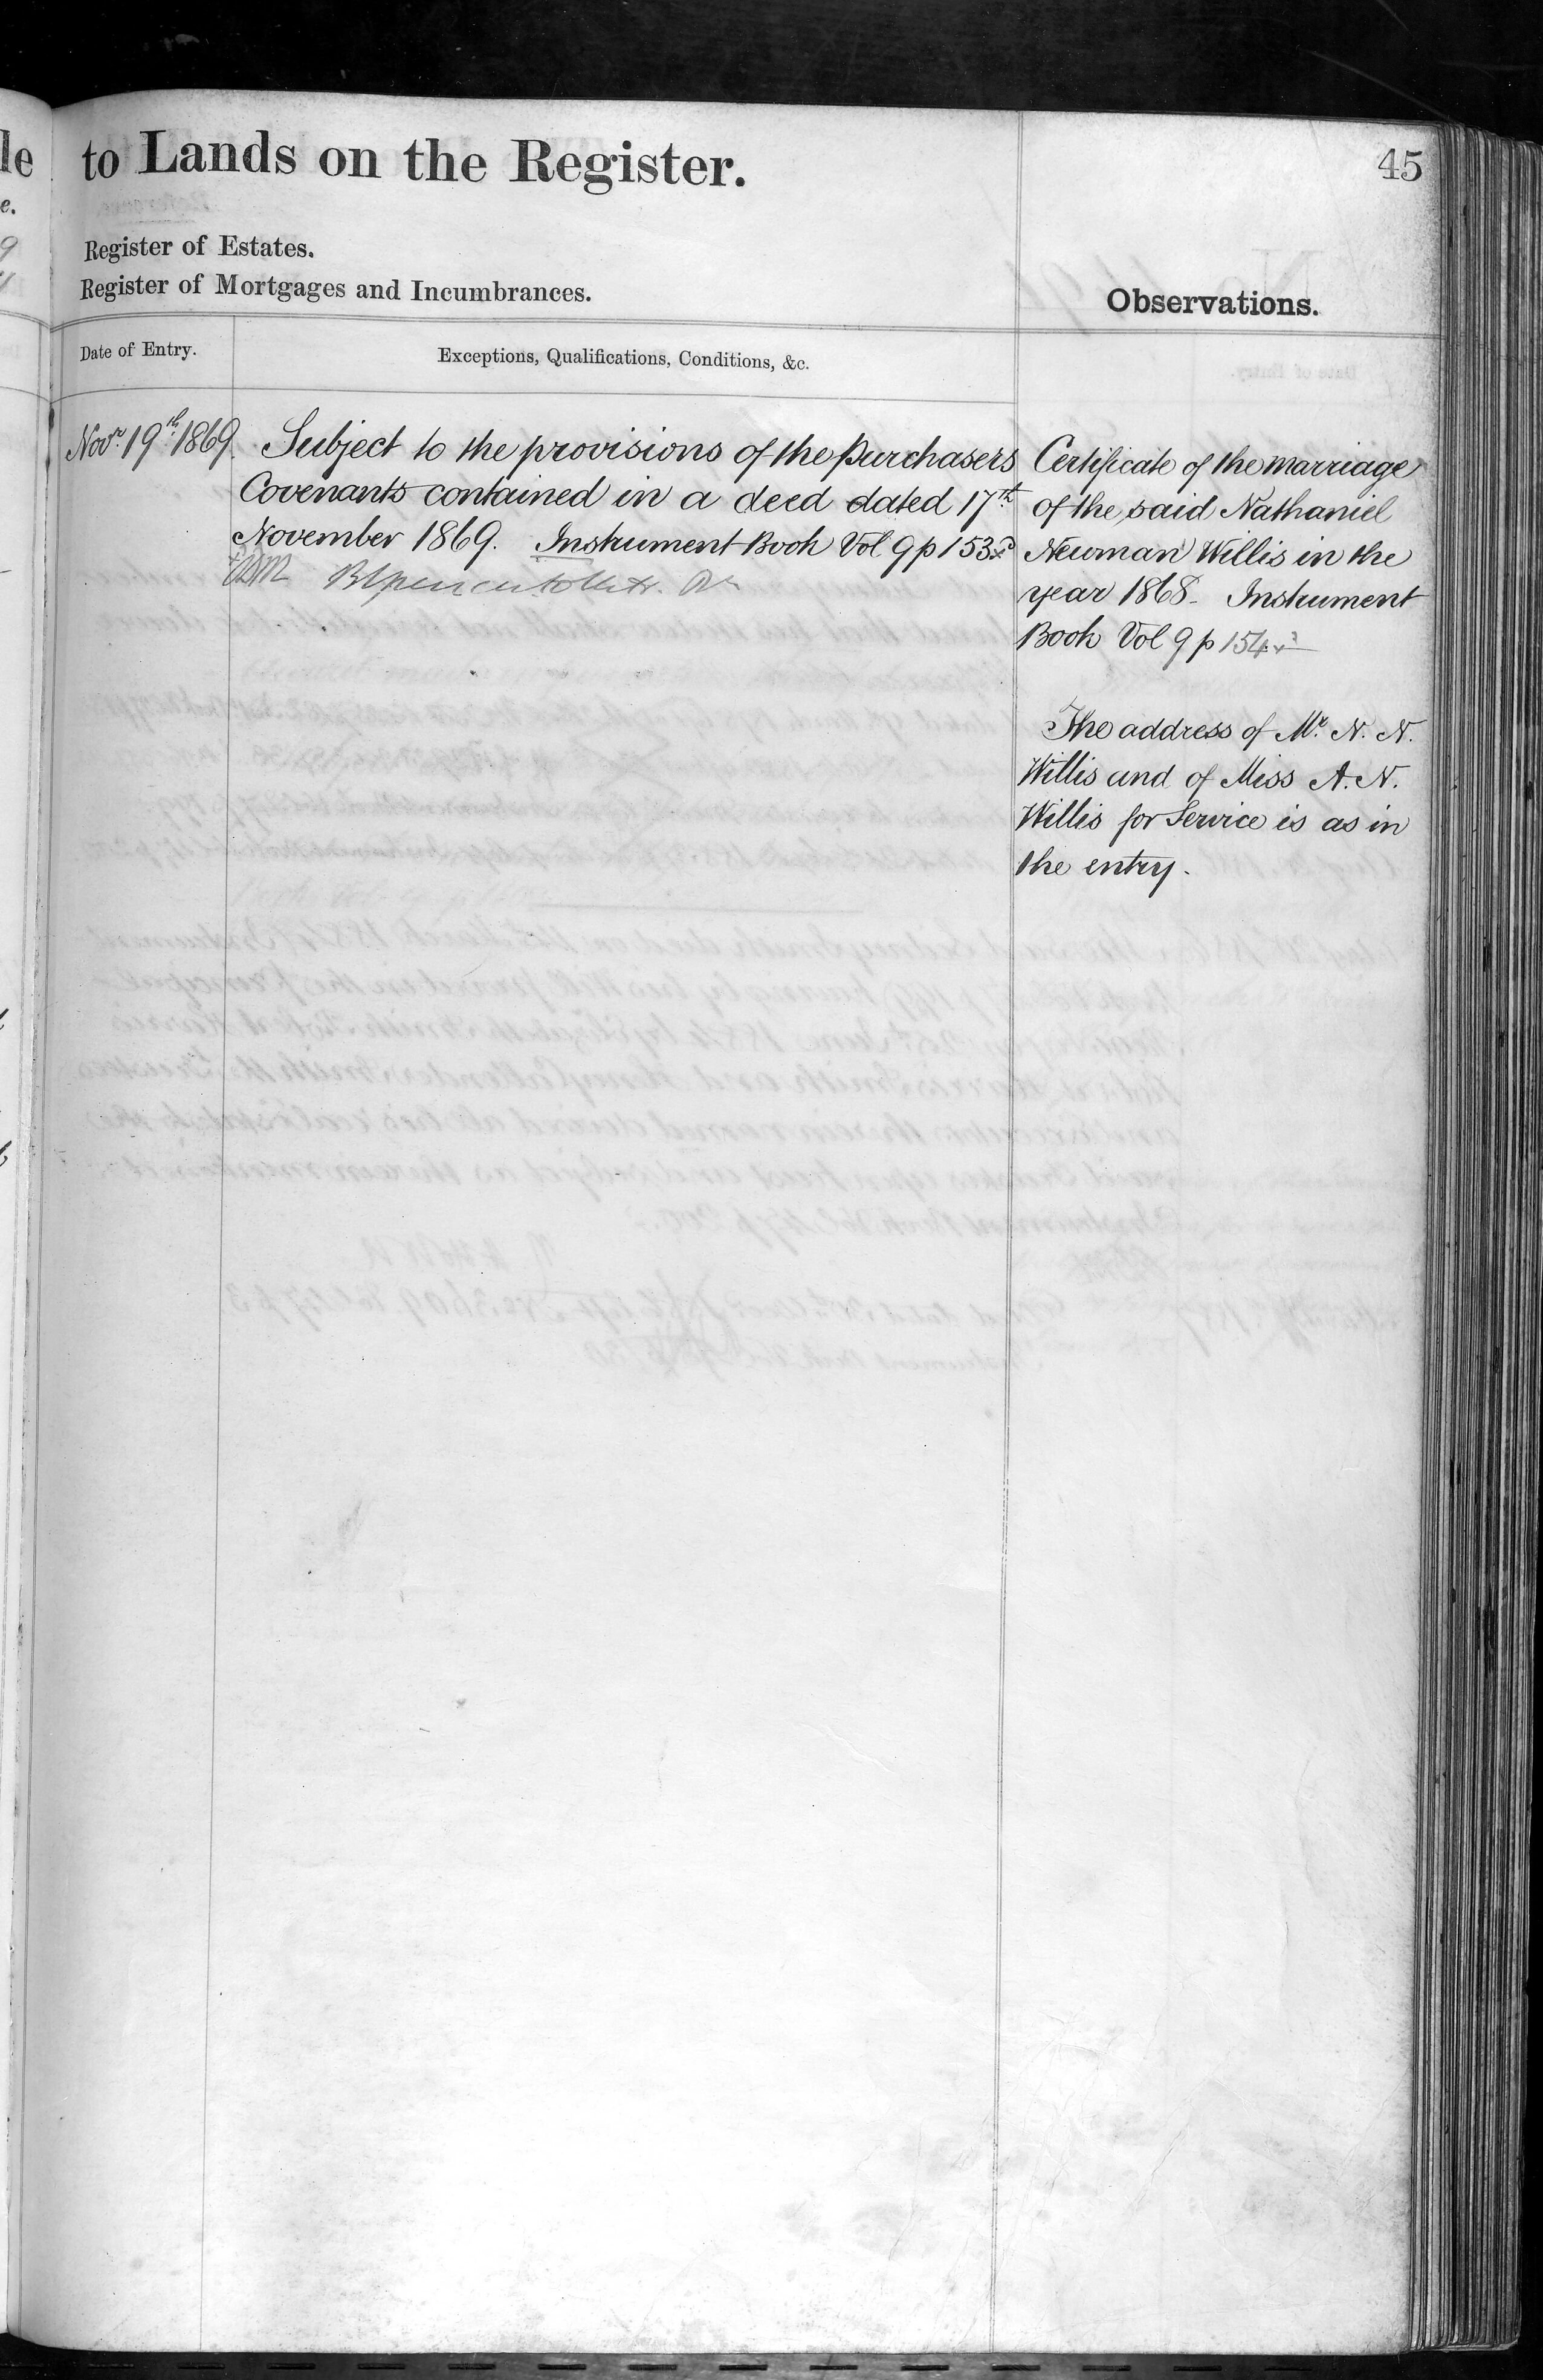 45
to Lands on the Register.
Register of Estates.
Register of Mortgages and Incumbrances.
Observations.
Date of Entry.
Exceptions, Qualifications, Conditions, &c.
Novr. 19th. 1869.
Subject to the provisions of the Purchasers
Covenants contained in a deed dated 17th.
November 1869. Instrument Book Vol 9 p 153
Certificate of the marriage
of the said Nathaniel
Newman Willis in the
year 1868. Instrument
Book Vol 9 p 154
The address of Mr. N. N.
Willis and of Miss A. N.
Willis for Service is as in
the entry.